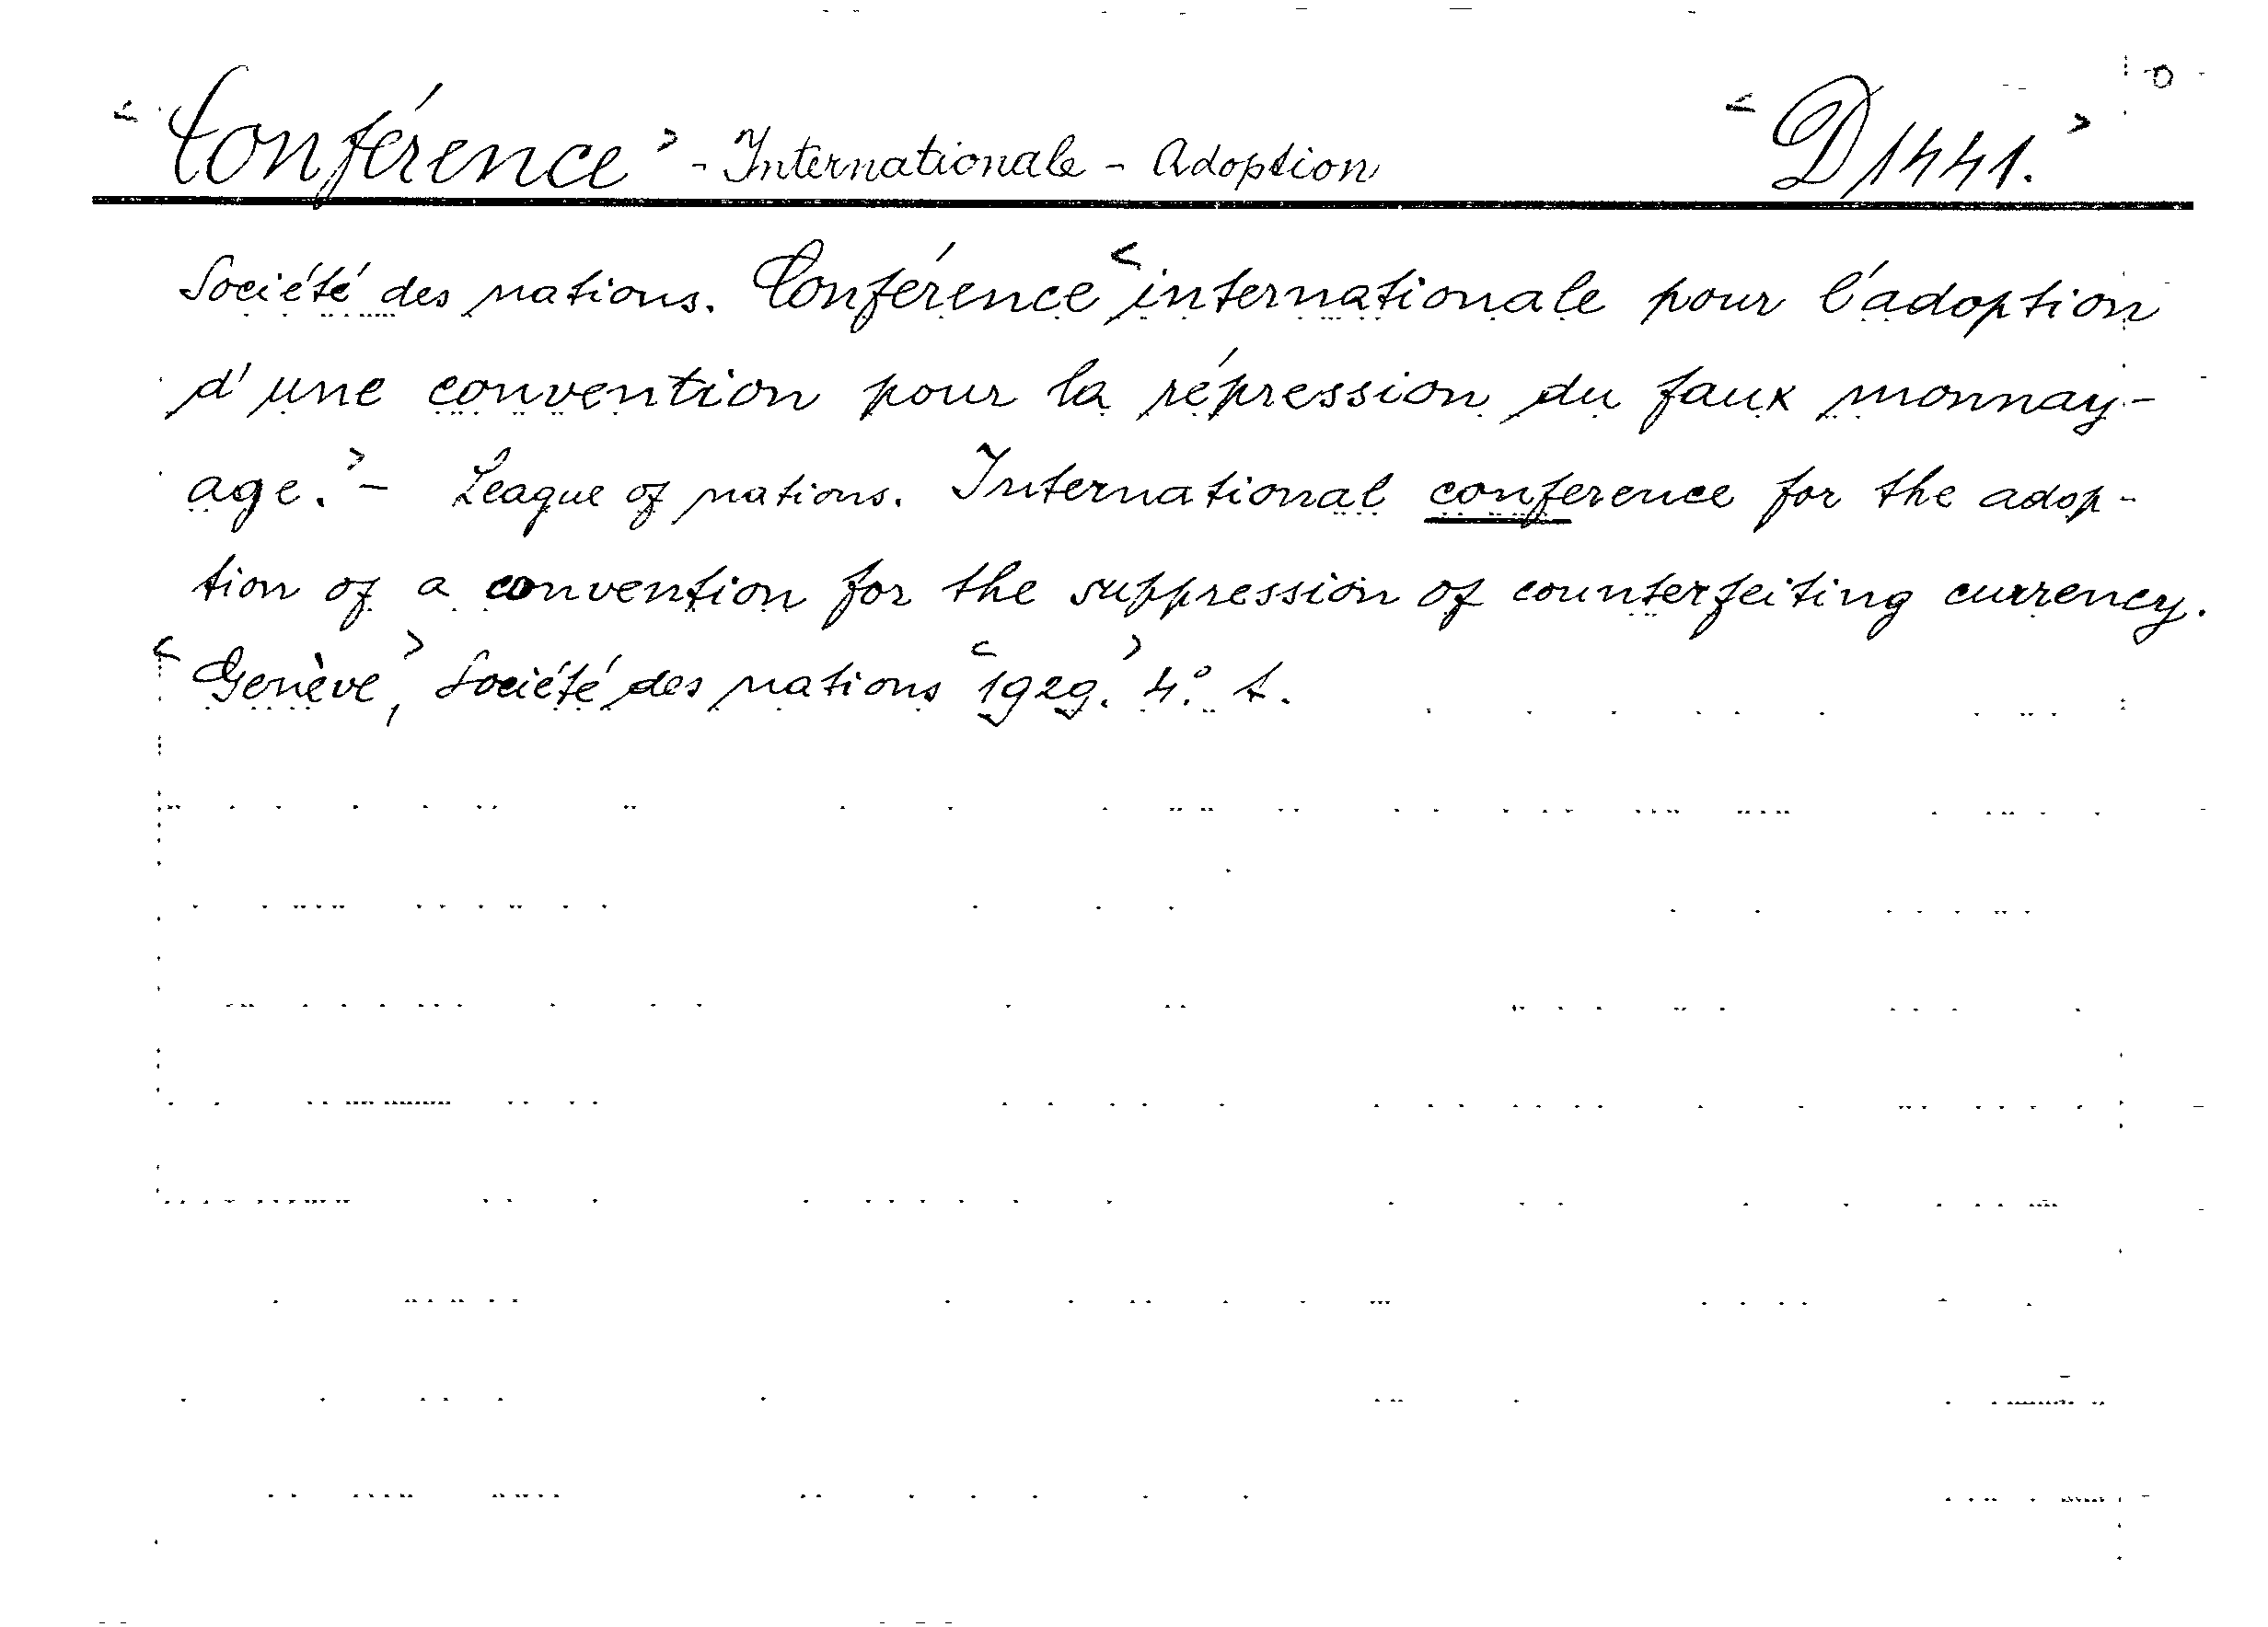 <Conférence> - Internationale - Adoption <D1441.>
Société des nations. Conférence <internationale pour l'adoption
d'une convention pour la répression du faux monnay-
age.> - League of nations. International conference for the adop-
tion of a convention for the suppression of counterfeiting currency.
<Genève,> Société des nations <1929.> 4:o